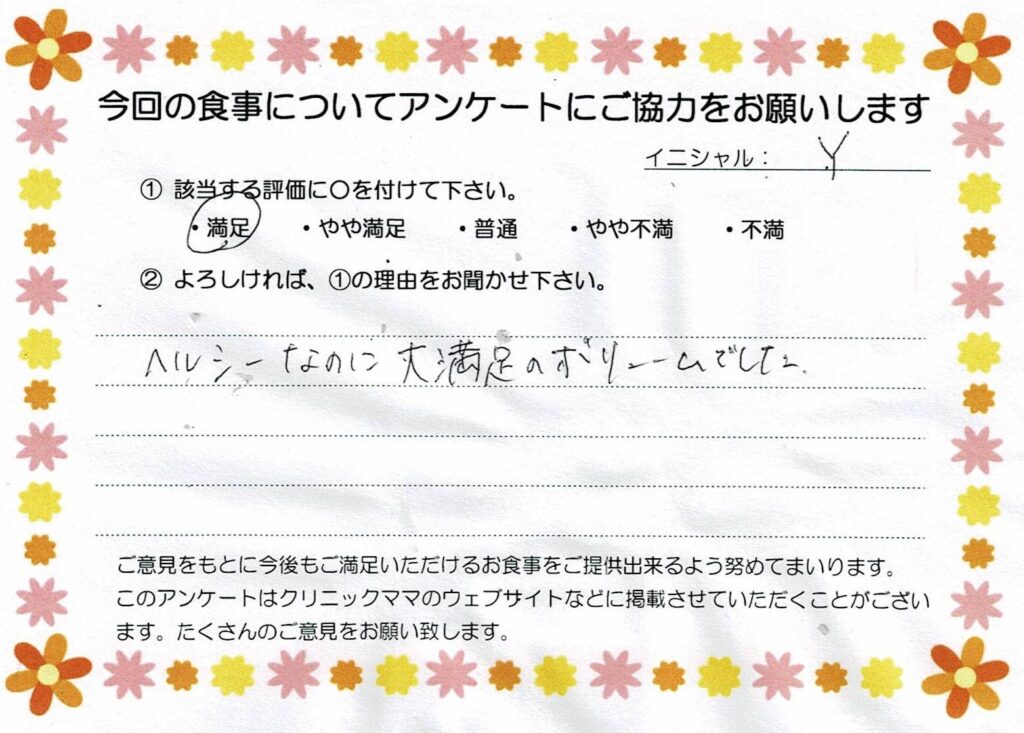 今回の食事についてアンケートにご協力をお願いします
イニシャル： Y
① 該当する評価に〇を付けて下さい。
・満足 ・やや満足 ・普通 ・やや不満 ・不満
② よろしければ、①の理由をお聞かせ下さい。
ヘルシーなのに大満足のボリュームでした。
ご意見をもとに今後もご満足いただけるお食事をご提供出来るよう努めてまいります。
このアンケートはクリニックママのウェブサイトなどに掲載させていただくことがござい
ます。たくさんのご意見をお願い致します。